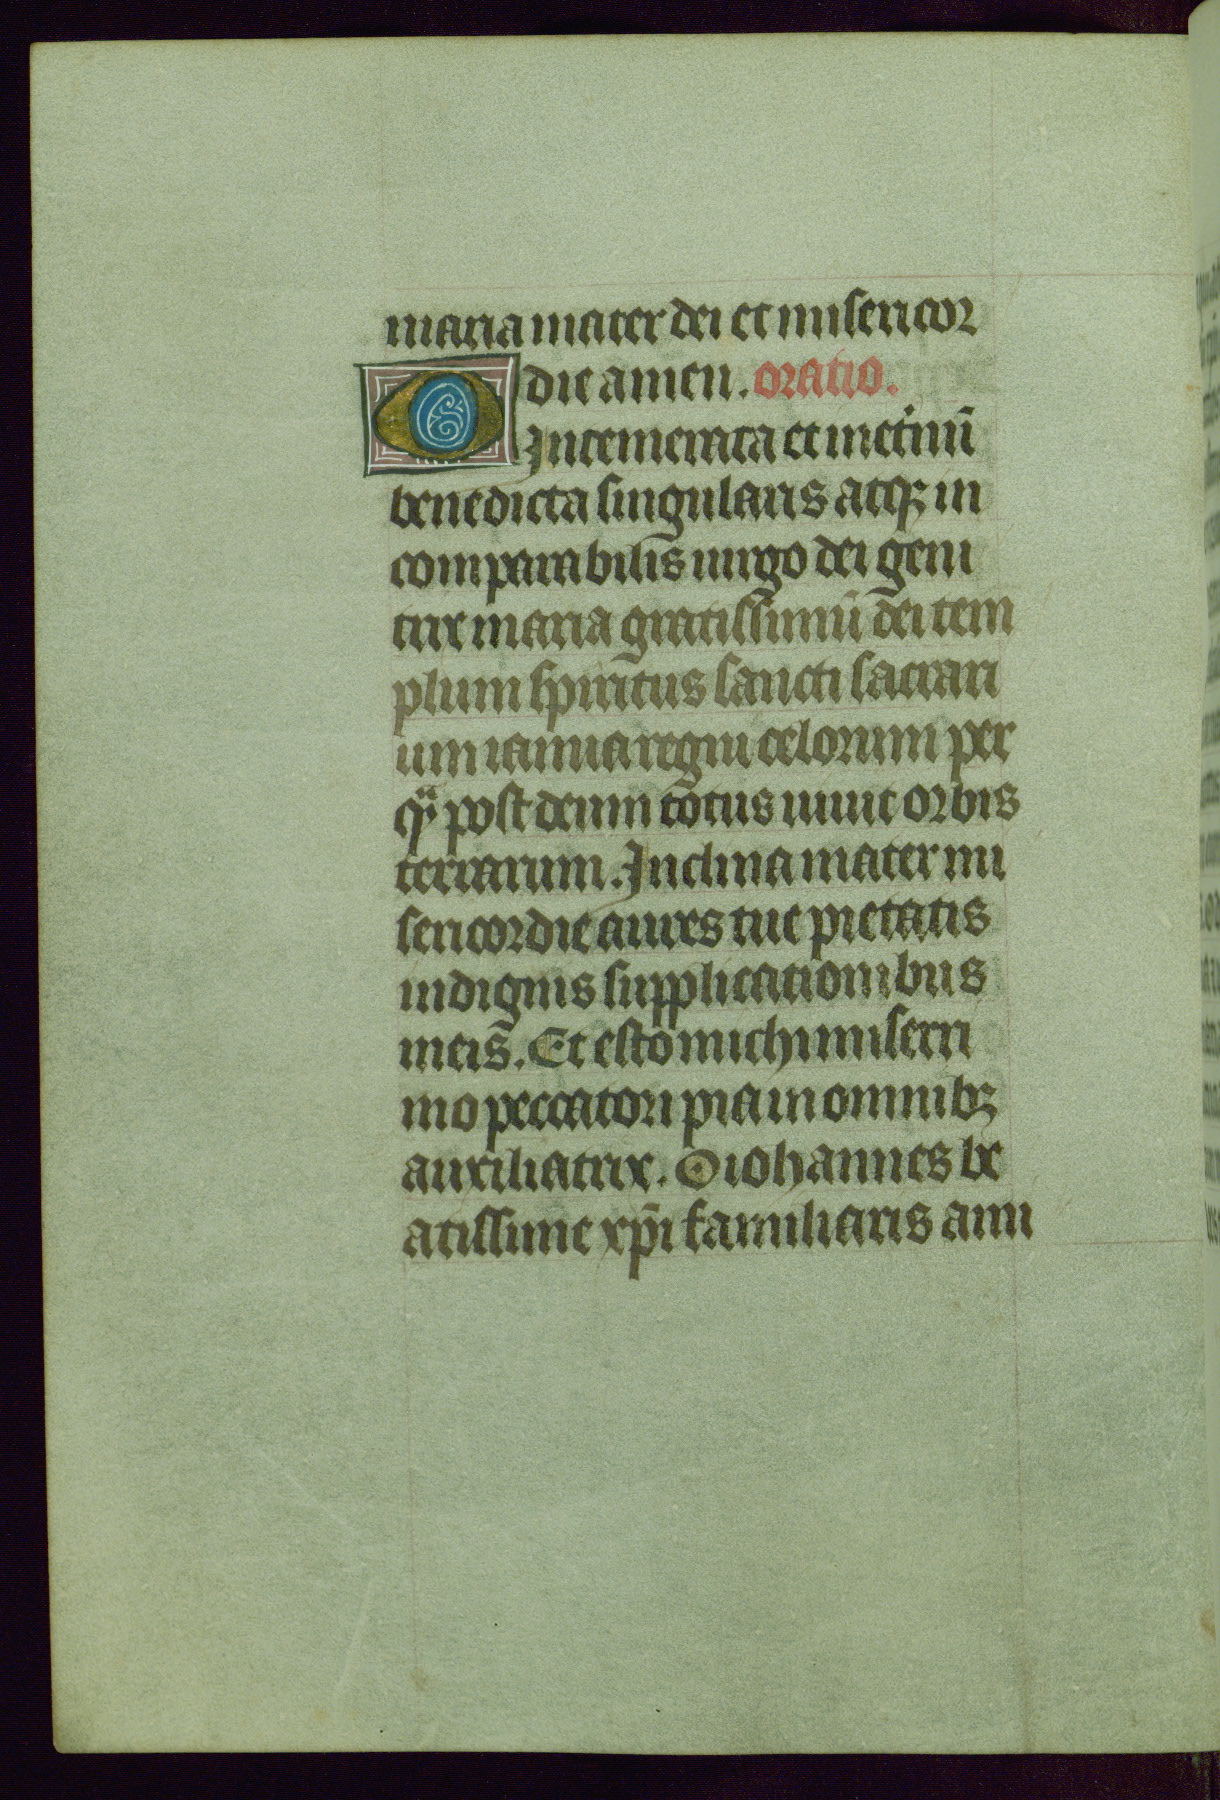 maria mater dei et misericor
die amen. oratio.
O Intemerata et in et'nū
benedicta singularis atqꝫ in
comparabilis uirgo dei geni
trix maria gratissimū dei tem
plum spiritus sancti sacrari
um ianua regni celorum per
qͣ post deum totus uiuit orbis
terrarum. Inclina mater mi
sericordie aures tue pietatis
indignis supplicationibus
meis. Et esto michi miserri
mo peccatori pia in omnibꝫ
auxiliatrix. O iohannes be
atissime xp̄i familiaris ami